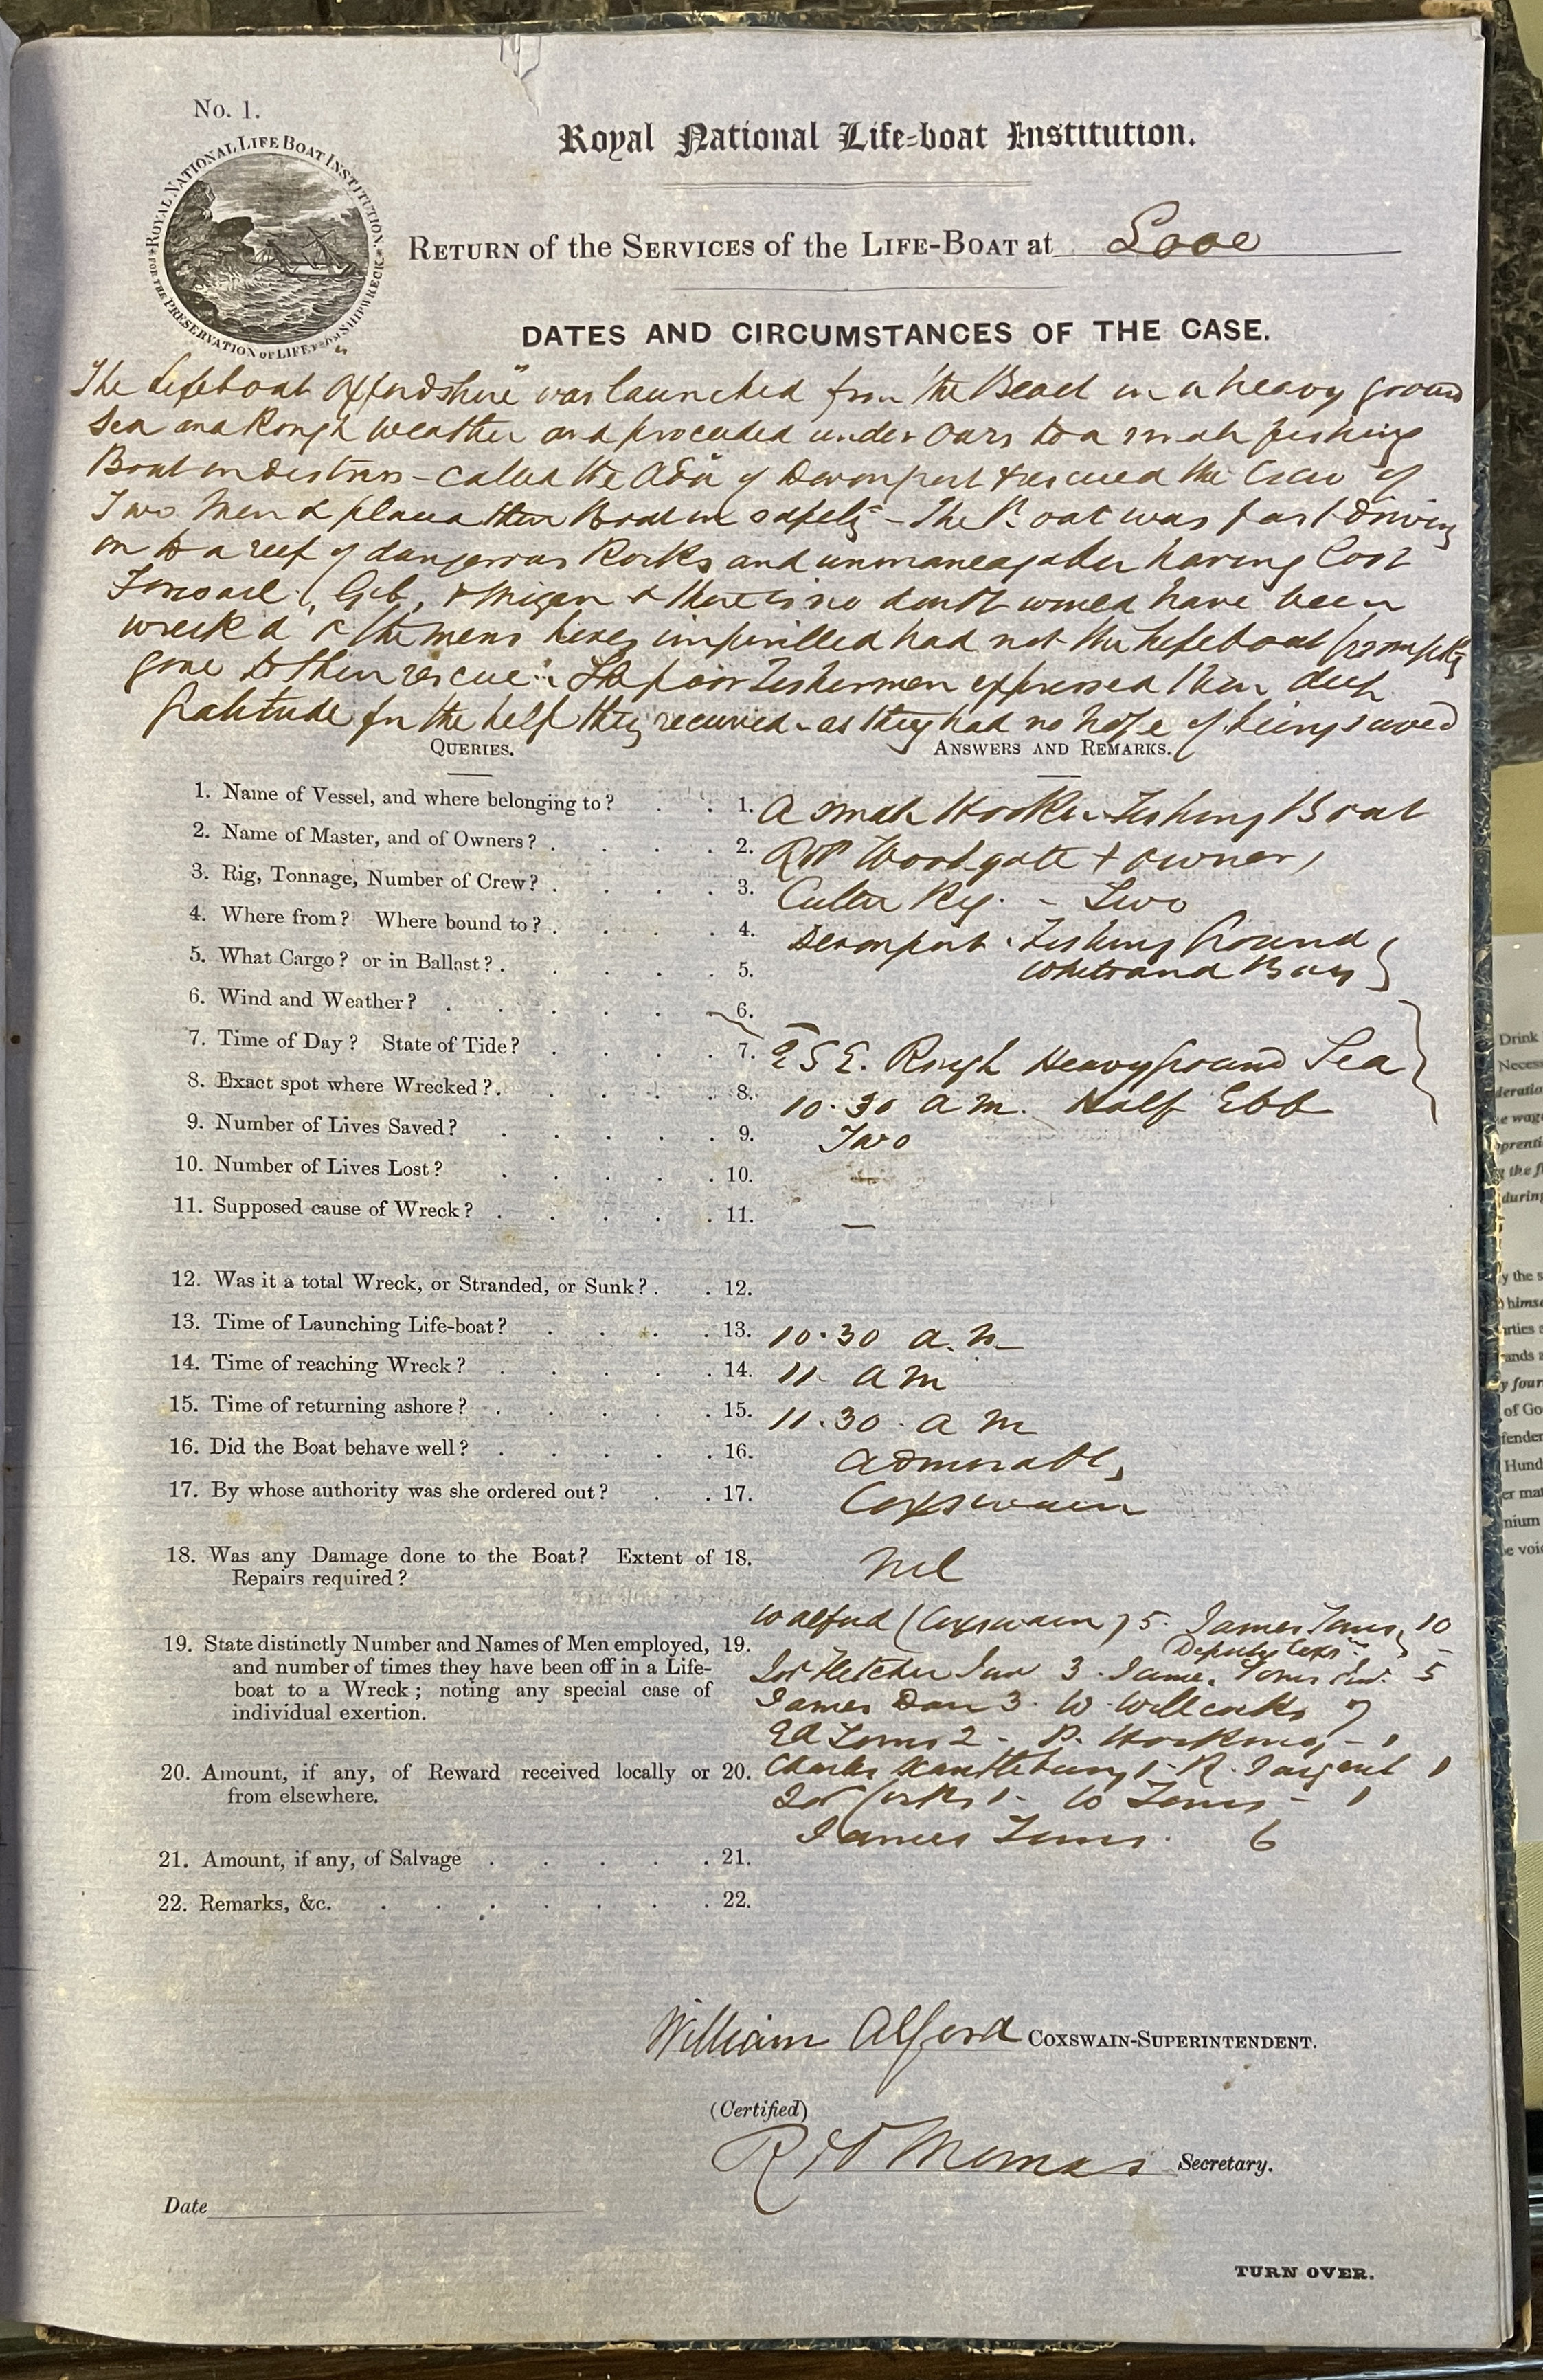 No. 1.
ROYAL NATIONAL LIFE BOAT INSTITUTION.
FOR THE PRESERVATION OF LIFE FROM SHIPWRECK
Royal National Life-boat Institution.
RETURN of the SERVICES of the LIFE-BOAT at Looe
DATES AND CIRCUMSTANCES OF THE CASE.
The Lifeboat "Oxfordshire" was launched from the Beach in a heavy ground
Sea and Rough weather and proceeded under Oars to a small fishing
Boat in distress - called the "Ada" of Devonport & rescued the Crew of
Two Men & placed their Boat in safety - The Boat was fast driving
on to a reef of dangerous Rocks and unmanageable having lost
Foresail, Gib, & Mizen & there is no doubt would have been
wreck'd & the mens lives imperilled had not the Lifeboat promptly
gone to their rescue. The poor Fishermen expressed their deep
Gratitude for the help they received - as they had no hope of being saved
QUERIES. ANSWERS AND REMARKS.
1. Name of Vessel, and where belonging to? 1. A small Hooker Fishing Boat
2. Name of Master, and of Owners? 2. Woodgate + owner
3. Rig, Tonnage, Number of Crew? 3. Cutter Rig. - Two
4. Where from? Where bound to? 4. Devonport. Fishing Ground
5. What Cargo? or in Ballast? 5. Whitsand Bay
6. Wind and Weather? 6.
7. Time of Day? State of Tide? 7. ESE. Rough Heavy ground Sea
8. Exact spot where Wrecked? 8. 10.30 am. Half Ebb
9. Number of Lives Saved? 9. Two
10. Number of Lives Lost? 10. —
11. Supposed cause of Wreck? 11. —
12. Was it a total Wreck, or Stranded, or Sunk? 12.
13. Time of Launching Life-boat? 13. 10.30 a.m
14. Time of reaching Wreck? 14. 11 am
15. Time of returning ashore? 15. 11.30 a m
16. Did the Boat behave well? 16. Admirably
17. By whose authority was she ordered out? 17. Coxswain
18. Was any Damage done to the Boat? Extent of 18. Nil
Repairs required?
W Alford (Coxswain) 5. James Toms 10
19. State distinctly Number and Names of Men employed, 19. Deputy Coxn
and number of times they have been off in a Life- Fletcher Jun 3. James Toms Jun. 5
boat to a Wreck; noting any special case of James Dan 3. W. Willcocks 7
individual exertion. Ed Toms 2 - P. Hocking - 1
20. Amount, if any, of Reward received locally or 20. Charles Kantlebury 1 - R. Sargent 1
from elsewhere. 1 - W Toms - 1
James Toms. 6
21. Amount, if any, of Salvage 21.
22. Remarks, &c. 22.
William Alford COXSWAIN-SUPERINTENDENT.
(Certified)
Thomas Secretary.
Date
TURN OVER.